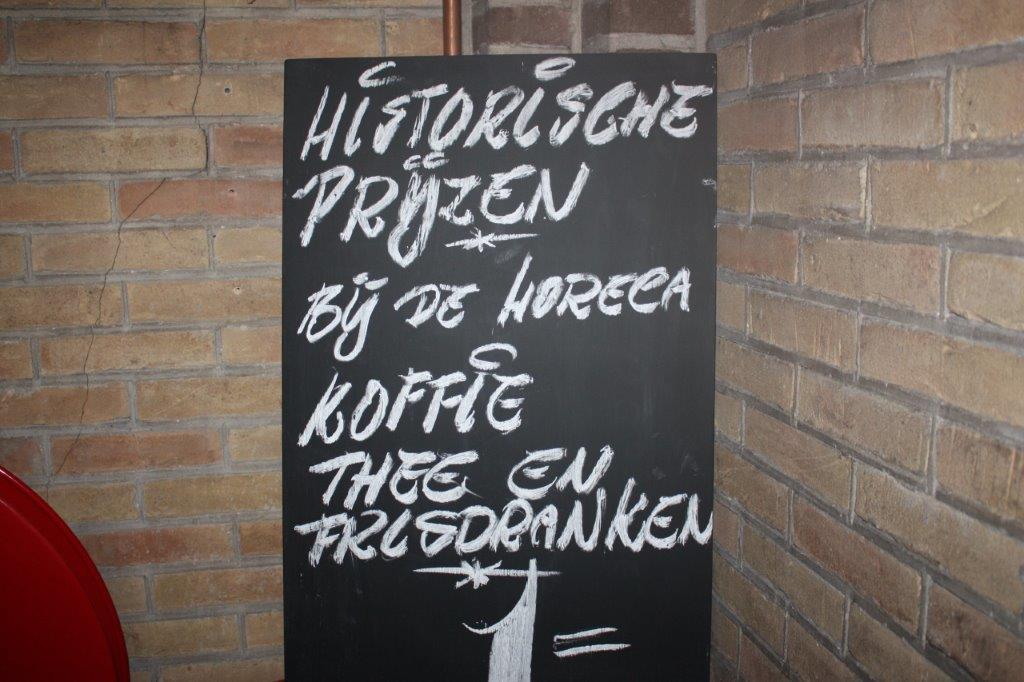 HISTORISCHE
PRIJZEN
BIJ DE HORECA
KOFFIE
THEE EN
FRISDRANKEN
1=